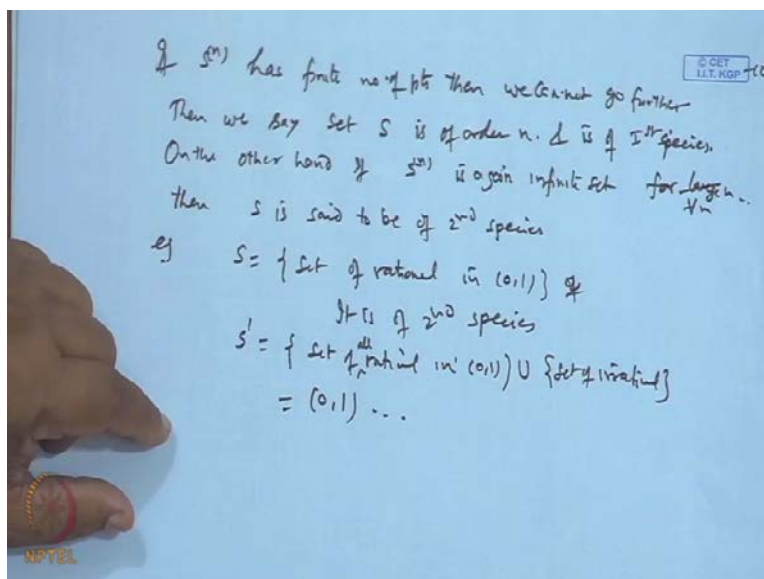 If S^(n) has finite no of pts then we can not go further
© CET
I.I.T. KGP
Then we say set S is of order n. & is of Ist species.
On the other hand if S^(n) is again infinite set for large n..
∀n
then S is said to be of 2nd species
eg S = { set of rational in (0,1) }
It is of 2nd species
S' = { set of all rational in (0,1) } ∪ { set of irrational }
= (0,1) ...
NPTEL